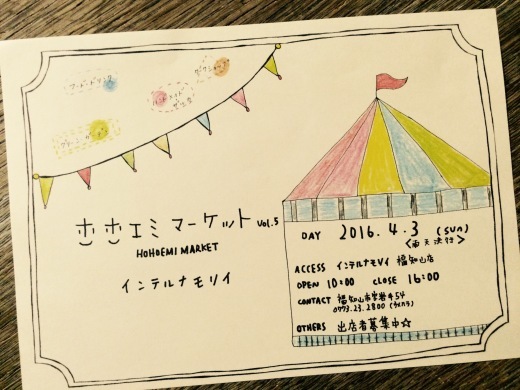 フード・ドリンク
ワークショップ
ハンドメイド
グリーン
ホホエミマーケット Vol.5
HOHOEMI MARKET
インテルナモリイ
DAY 2016.4.3 (sun)
<雨天決行>
ACCESS インテルナモリイ 福知山店
OPEN 10:00 CLOSE 16:00
CONTACT 福知山市字岩井54
0773.23.2800
OTHERS 出店者募集中☆